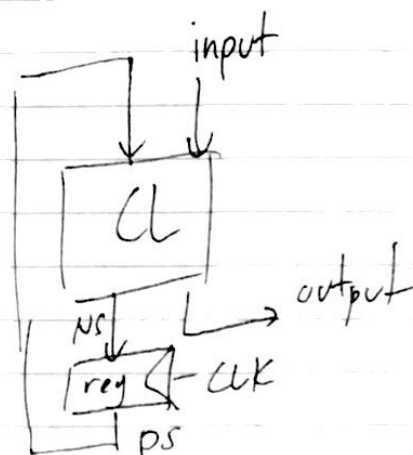 input
CL
output
NS
reg
CLK
PS